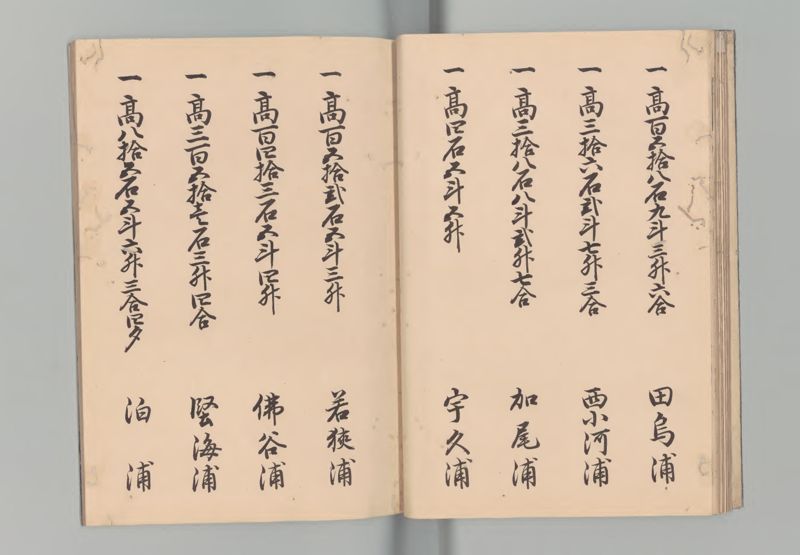 一 高百五拾八石九斗三升六合 田烏浦
一 高三拾六石弐斗七升三合 西小河浦
一 高三拾八石八斗弐升七合 加尾浦
一 高四石五斗五升 宇久浦
一 高百五拾弐石五斗三升 若狹浦
一 高百四拾三石五斗四升 佛谷浦
一 高三百五拾壱石三升四合 堅海浦
一 高八拾五石五斗六升三合四夕 泊浦